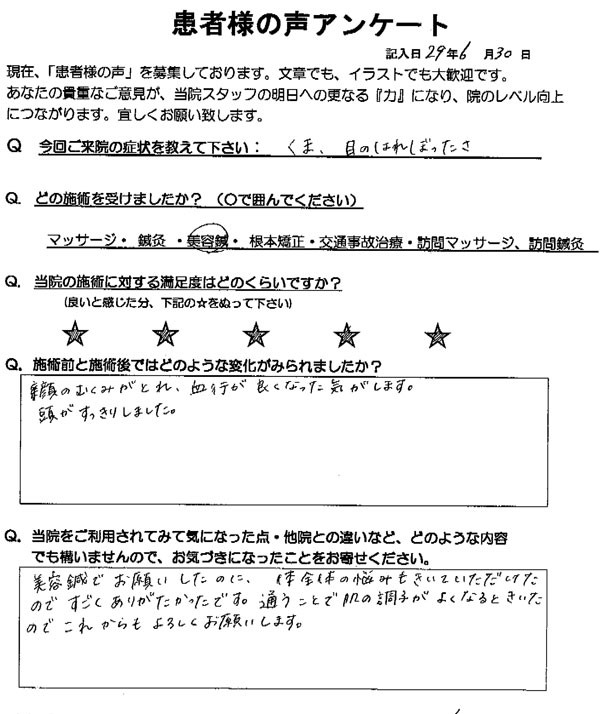 患者様の声アンケート
記入日 29年 6 月 30 日
現在、「患者様の声」を募集しております。文章でも、イラストでも大歓迎です。
あなたの貴重なご意見が、当院スタッフの明日への更なる『力』になり、院のレベル向上
につながります。宜しくお願い致します。
Q 今回ご来院の症状を教えて下さい： くま、目のはれぼったさ
Q. どの施術を受けましたか？（○で囲んでください）
マッサージ・ 鍼灸 ・美容鍼・ 根本矯正・交通事故治療・訪問マッサージ、訪問鍼灸
Q. 当院の施術に対する満足度はどのくらいですか？
（良いと感じた分、下記の☆をぬって下さい）
Q. 施術前と施術後ではどのような変化がみられましたか？
顔のむくみがとれ、血行が良くなった気がします。
頭がすっきりしました。
Q. 当院をご利用されてみて気になった点・他院との違いなど、どのような内容
でも構いませんので、お気づきになったことをお寄せください。
美容鍼でお願いしたのに、体全体の悩みもきいていただけた
のですごくありがたかったです。通うことで肌の調子がよくなるときいた
のでこれからもよろしくお願いします。